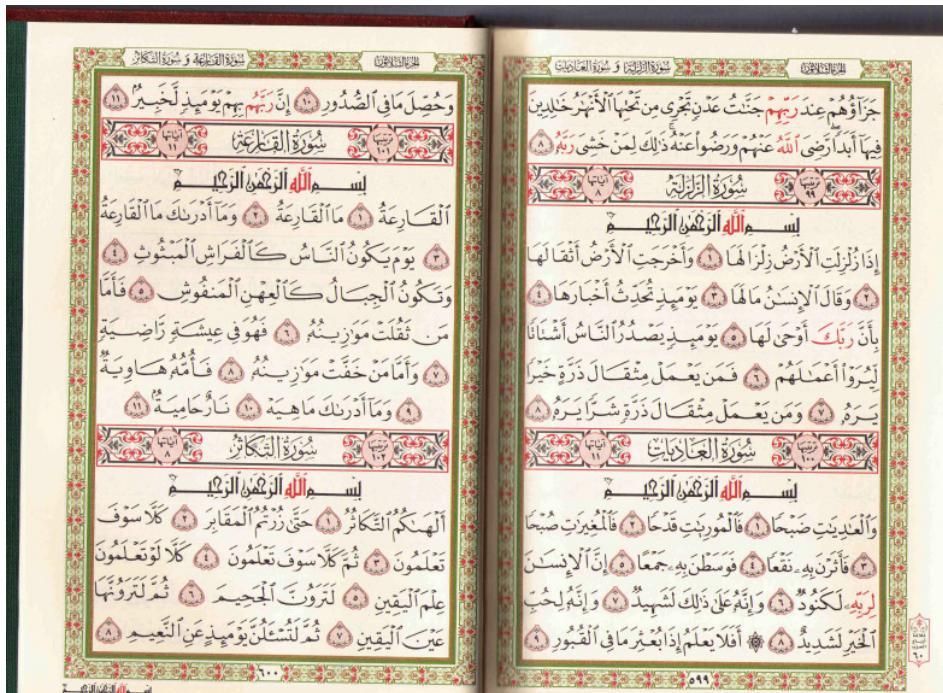 الجزء الثلاثون
سورة الزلزلة و سورة العاديات
جَزَآؤُهُمْ عِندَ رَبِّهِمْ جَنَّٰتُ عَدْنٍ تَجْرِى مِن تَحْتِهَا ٱلْأَنْهَٰرُ خَٰلِدِينَ
فِيهَآ أَبَدًا رَّضِىَ ٱللَّهُ عَنْهُمْ وَرَضُوا۟ عَنْهُ ذَٰلِكَ لِمَنْ خَشِىَ رَبَّهُۥ ٨
ترتيبها ٩٩ سُورَةُ الزَّلْزَلَةِ آياتها ٨
بِسْمِ ٱللَّهِ ٱلرَّحْمَٰنِ ٱلرَّحِيمِ
إِذَا زُلْزِلَتِ ٱلْأَرْضُ زِلْزَالَهَا ١ وَأَخْرَجَتِ ٱلْأَرْضُ أَثْقَالَهَا
٢ وَقَالَ ٱلْإِنسَٰنُ مَا لَهَا ٣ يَوْمَئِذٍ تُحَدِّثُ أَخْبَارَهَا ٤
بِأَنَّ رَبَّكَ أَوْحَىٰ لَهَا ٥ يَوْمَئِذٍ يَصْدُرُ ٱلنَّاسُ أَشْتَاتًا
لِّيُرَوْا۟ أَعْمَٰلَهُمْ ٦ فَمَن يَعْمَلْ مِثْقَالَ ذَرَّةٍ خَيْرًا
يَرَهُۥ ٧ وَمَن يَعْمَلْ مِثْقَالَ ذَرَّةٍ شَرًّا يَرَهُۥ ٨
ترتيبها ١٠٠ سُورَةُ العَادِيَاتِ آياتها ١١
بِسْمِ ٱللَّهِ ٱلرَّحْمَٰنِ ٱلرَّحِيمِ
وَٱلْعَٰدِيَٰتِ ضَبْحًا ١ فَٱلْمُورِيَٰتِ قَدْحًا ٢ فَٱلْمُغِيرَٰتِ صُبْحًا
٣ فَأَثَرْنَ بِهِۦ نَقْعًا ٤ فَوَسَطْنَ بِهِۦ جَمْعًا ٥ إِنَّ ٱلْإِنسَٰنَ
لِرَبِّهِۦ لَكَنُودٌ ٦ وَإِنَّهُۥ عَلَىٰ ذَٰلِكَ لَشَهِيدٌ ٧ وَإِنَّهُۥ لِحُبِّ
ٱلْخَيْرِ لَشَدِيدٌ ٨ ۞ أَفَلَا يَعْلَمُ إِذَا بُعْثِرَ مَا فِى ٱلْقُبُورِ ٩
٦٠
٥٩٩
الجزء الثلاثون
سورة القارعة و سورة التكاثر
وَحُصِّلَ مَا فِى ٱلصُّدُورِ ١٠ إِنَّ رَبَّهُم بِهِمْ يَوْمَئِذٍ لَّخَبِيرٌۢ ١١
ترتيبها ١٠١ سُورَةُ القَارِعَةِ آياتها ١١
بِسْمِ ٱللَّهِ ٱلرَّحْمَٰنِ ٱلرَّحِيمِ
ٱلْقَارِعَةُ ١ مَا ٱلْقَارِعَةُ ٢ وَمَآ أَدْرَىٰكَ مَا ٱلْقَارِعَةُ
٣ يَوْمَ يَكُونُ ٱلنَّاسُ كَٱلْفَرَاشِ ٱلْمَبْثُوثِ ٤
وَتَكُونُ ٱلْجِبَالُ كَٱلْعِهْنِ ٱلْمَنفُوشِ ٥ فَأَمَّا
مَن ثَقُلَتْ مَوَٰزِينُهُۥ ٦ فَهُوَ فِى عِيشَةٍ رَّاضِيَةٍ
٧ وَأَمَّا مَنْ خَفَّتْ مَوَٰزِينُهُۥ ٨ فَأُمُّهُۥ هَاوِيَةٌ
٩ وَمَآ أَدْرَىٰكَ مَا هِيَهْ ١٠ نَارٌ حَامِيَةٌۢ ١١
ترتيبها ١٠٢ سُورَةُ التَّكَاثُرِ آياتها ٨
بِسْمِ ٱللَّهِ ٱلرَّحْمَٰنِ ٱلرَّحِيمِ
أَلْهَىٰكُمُ ٱلتَّكَاثُرُ ١ حَتَّىٰ زُرْتُمُ ٱلْمَقَابِرَ ٢ كَلَّا سَوْفَ
تَعْلَمُونَ ٣ ثُمَّ كَلَّا سَوْفَ تَعْلَمُونَ ٤ كَلَّا لَوْ تَعْلَمُونَ
عِلْمَ ٱلْيَقِينِ ٥ لَتَرَوُنَّ ٱلْجَحِيمَ ٦ ثُمَّ لَتَرَوُنَّهَا
عَيْنَ ٱلْيَقِينِ ٧ ثُمَّ لَتُسْـَٔلُنَّ يَوْمَئِذٍ عَنِ ٱلنَّعِيمِ ٨
٦٠٠
بِسْمِ ٱللَّهِ ٱلرَّحْمَٰنِ ٱلرَّحِيمِ